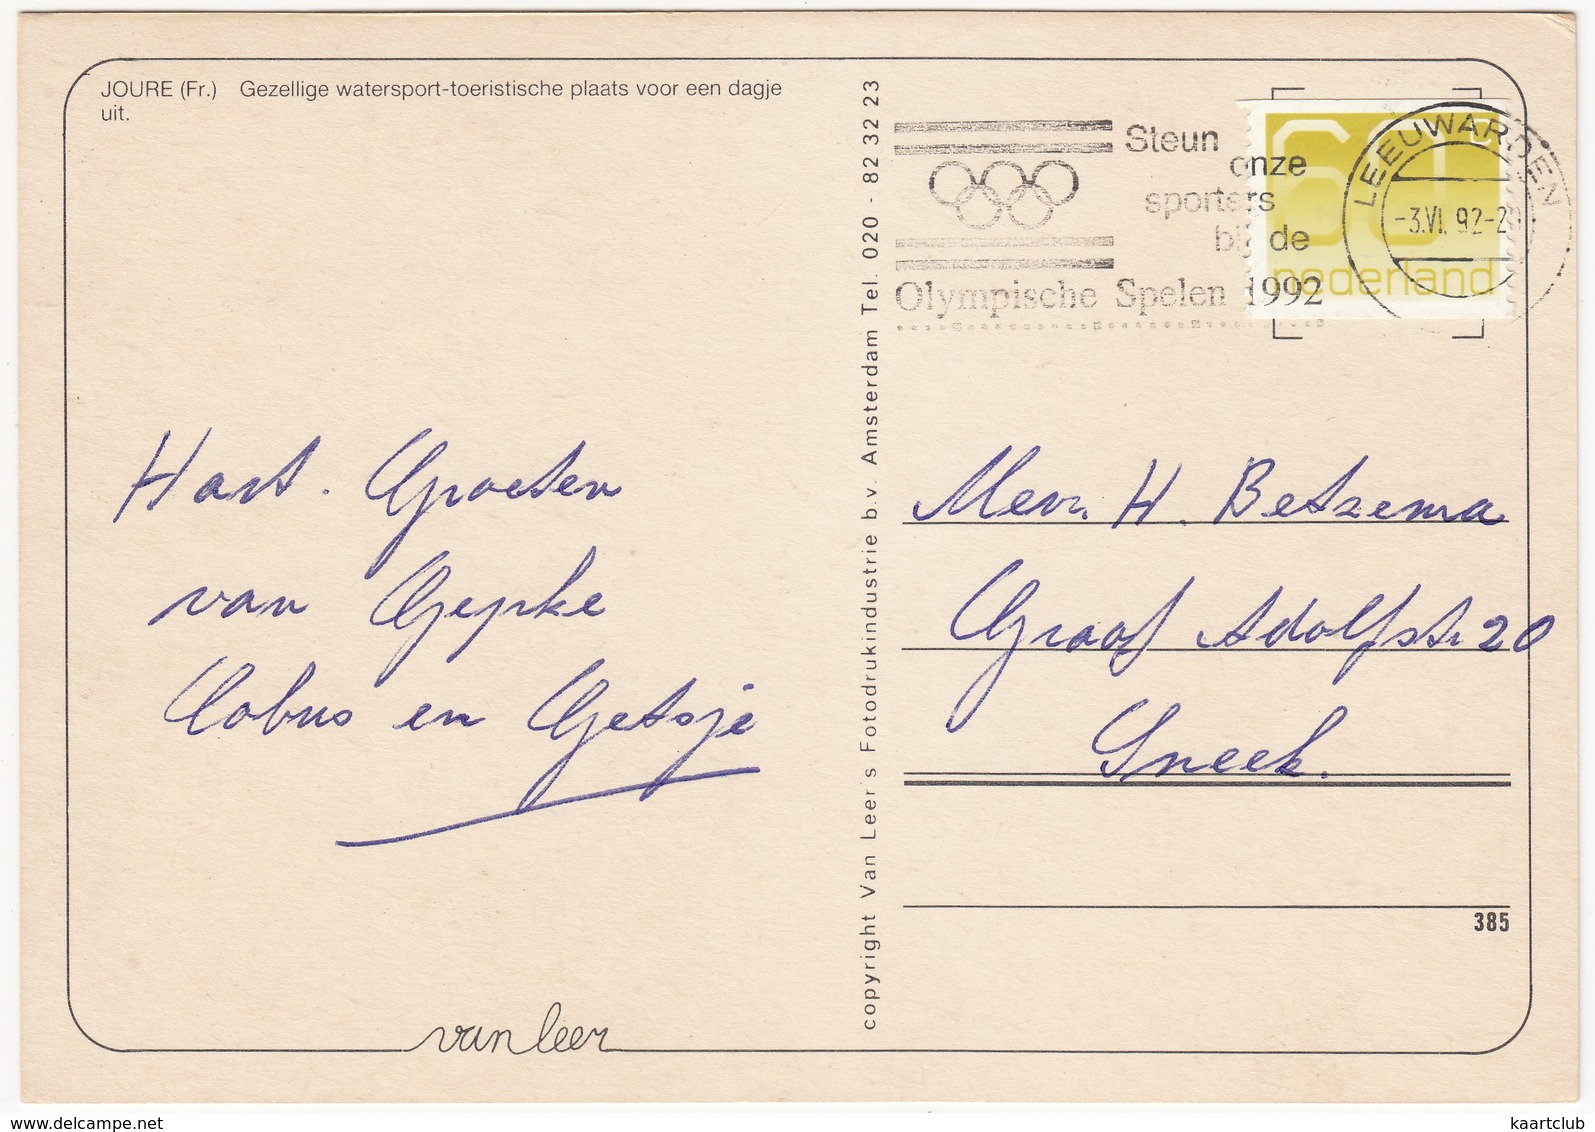 JOURE (Fr.) Gezellige watersport-toeristische plaats voor een dagje
uit.
Hart. Groeten
van Gepke
Cobus en Getsje
van leer
copyright Van Leer's Fotodrukindustrie b.v. Amsterdam Tel. 020 - 82 32 23
Steun
onze
sporters
bij de
Olympische Spelen 1992
60c
nederland
LEEUWARDEN
-3.VI.92-20
Mevr. H. Betzema
Graaf Adolfstr 20
Sneek.
385
www.delcampe.net
kaartclub